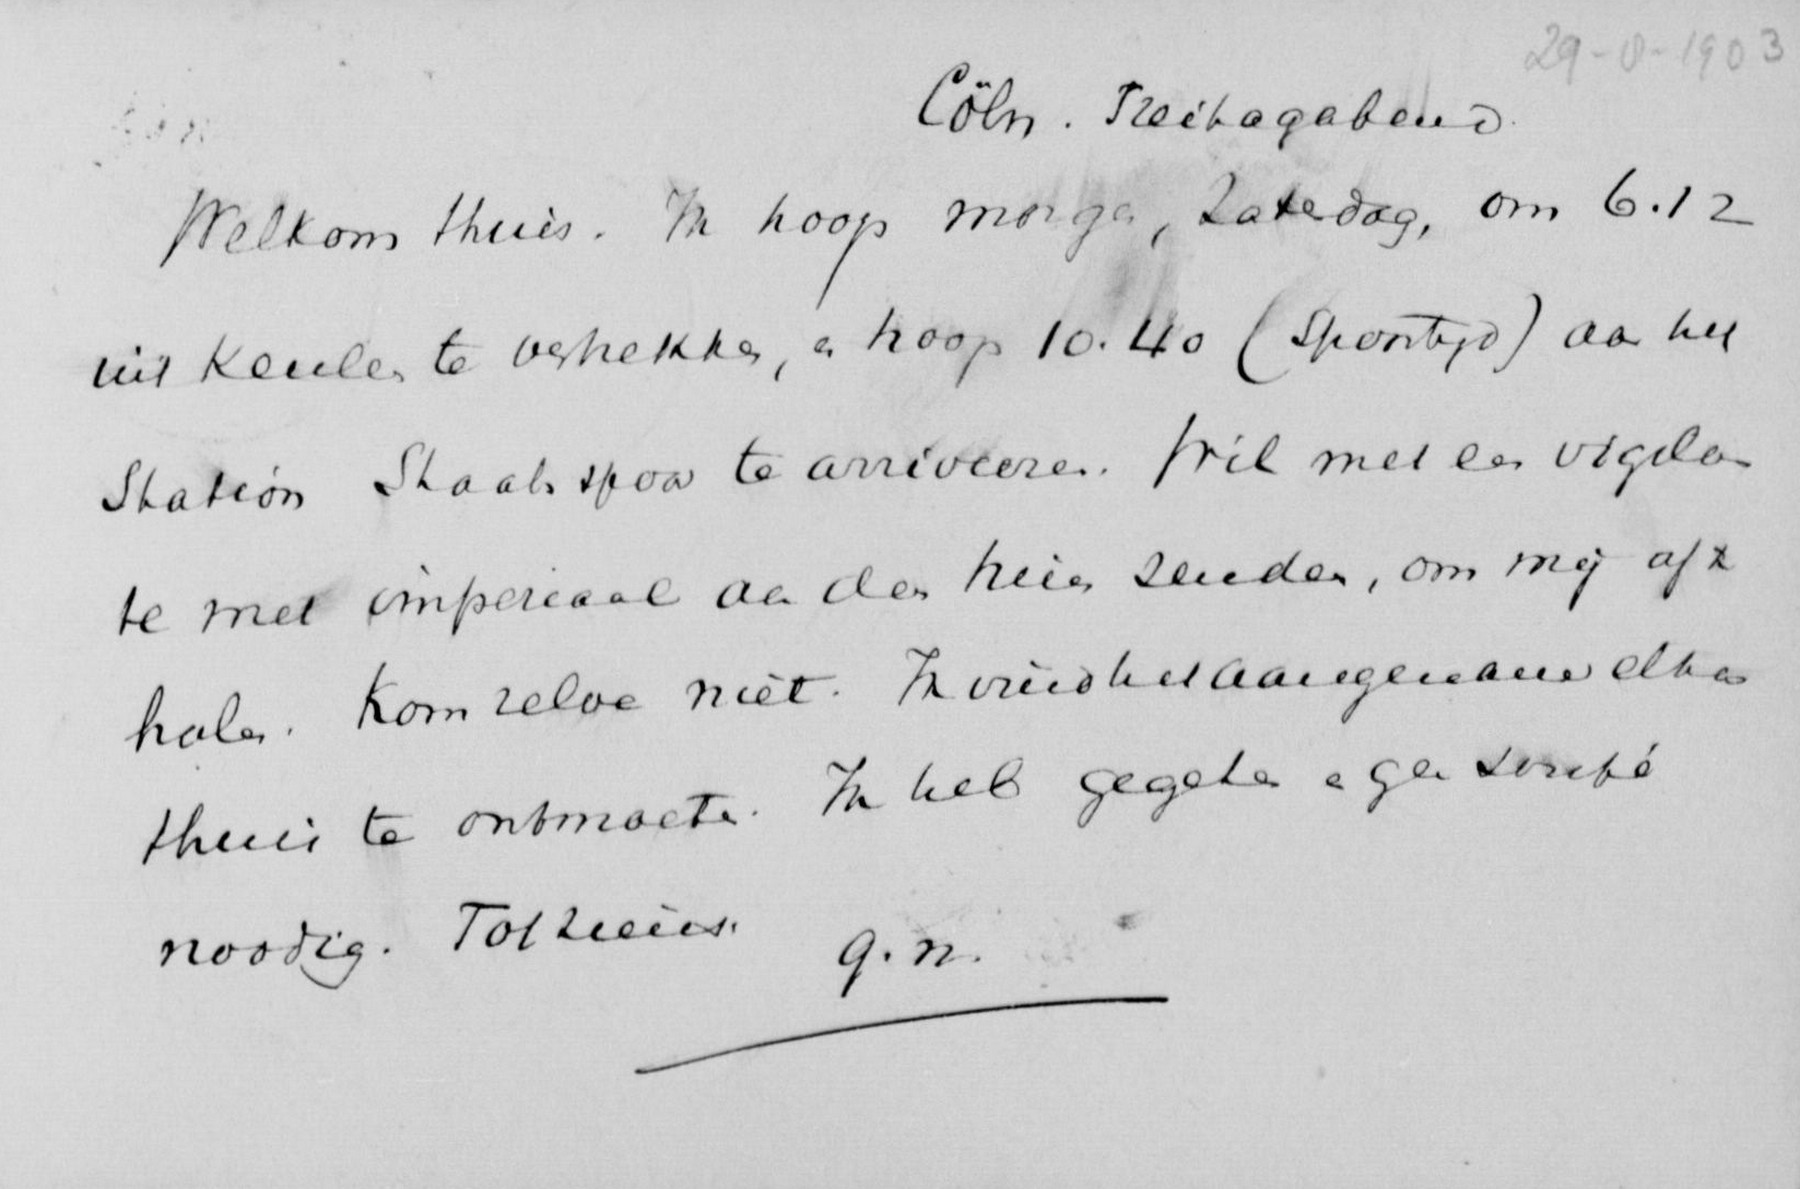 29-8-1903
Cöln. Freitagabend.
Welkom thuis. Ik hoop morgen, Zaterdag, om 6.12
uit Keulen te vertrekken, en hoop 10.40 (Spoortijd) aan het
Station Staatsspoor te arriveeren. Wil met een vigelan
te met imperiaal aan den trein zenden, om mij af te
halen. Kom zelve niet. Ik vind het aangenamer elkaar
thuis te ontmoeten. Ik heb gegeten en geen soupé
noodig. Tot ziens.
G. N.